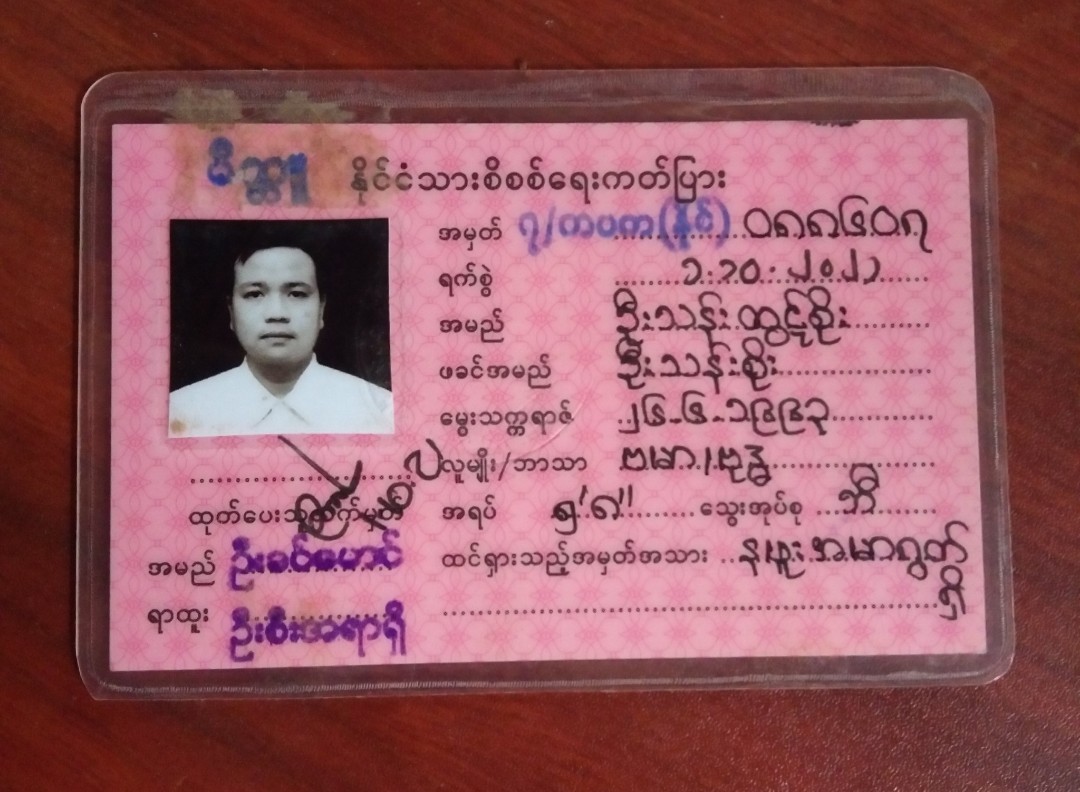 မိတ္ထူ နိုင်ငံသားစိစစ်ရေးကတ်ပြား
အမှတ် ၇/ကပက(နိုင်) ၀၈၈၆၀၈
ရက်စွဲ ၁.၁၀.၂၀၂၂
အမည် ဦးသန်းထွဋ်စိုး
ဖခင်အမည် ဦးသန်းစိုး
မွေးသက္ကရာဇ် ၂၆.၆.၁၉၉၃
လူမျိုး/ဘာသာ ဗမာ/ဗုဒ္ဓ
အရပ် ၅'၈'' သွေးအုပ်စု ဘီ
ထင်ရှားသည့်အမှတ်အသား နဖူးအမာရွတ်ရှိ
ထုတ်ပေးသူလက်မှတ်
အမည် ဦးခင်မောင်
ရာထူး ဦးစီးအရာရှိ